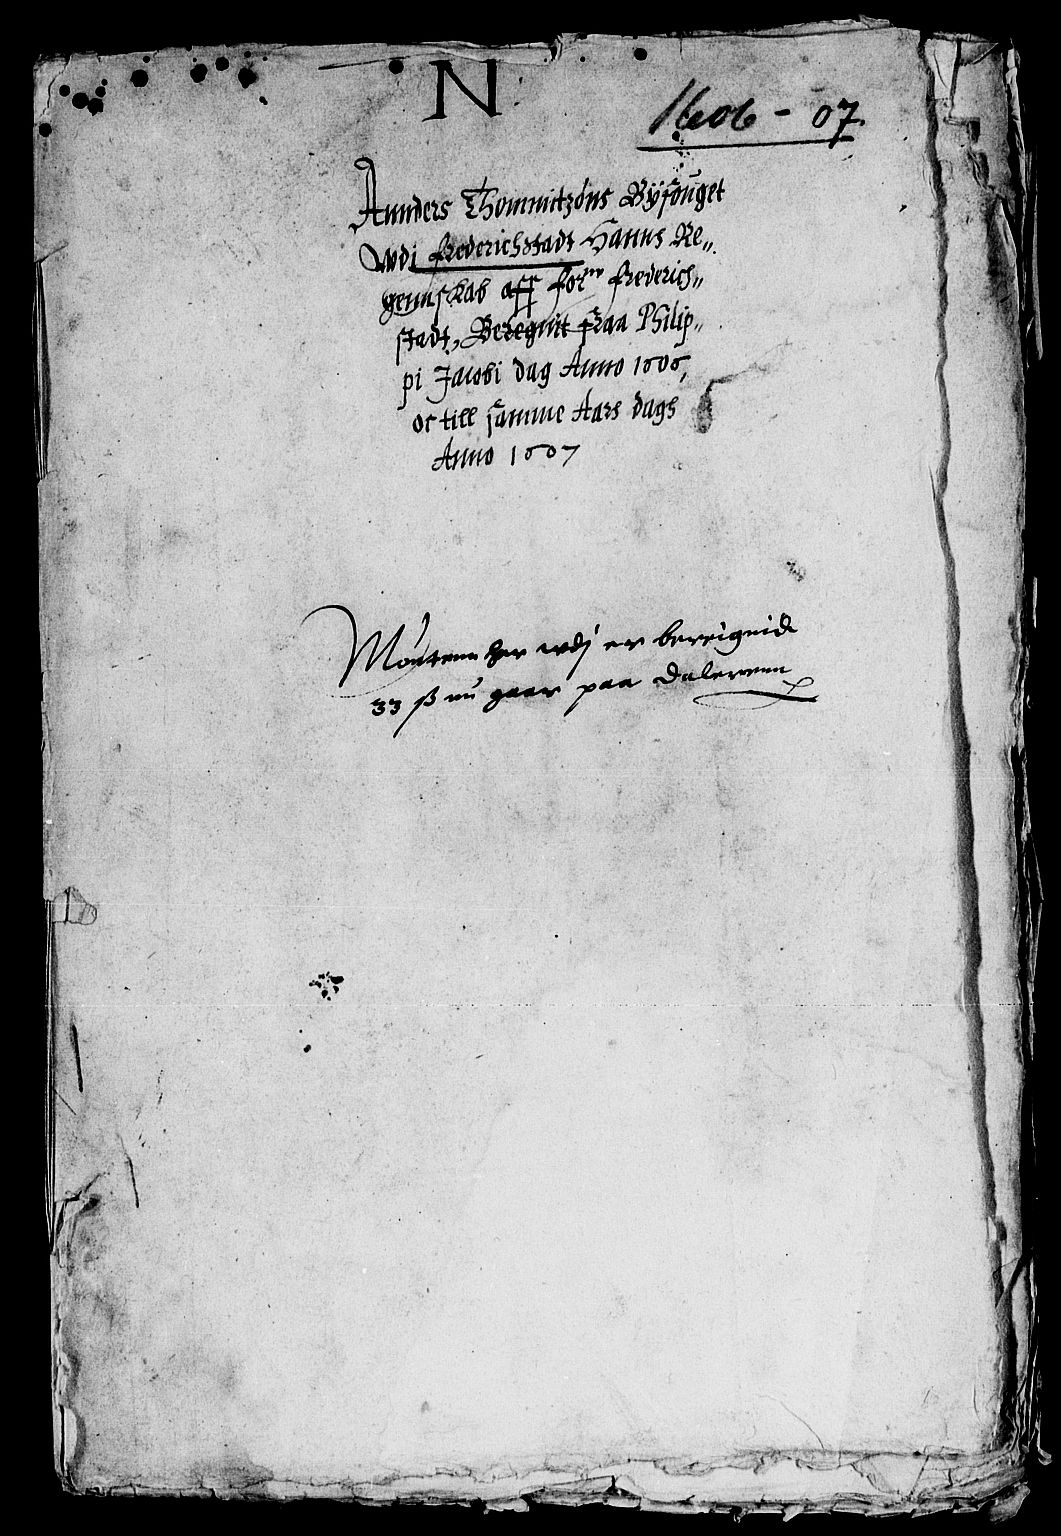 N
1606 - 07.
Annders Thommitzöns Byfouget
Wdi frederichstadt Hanns Re„
gennskab aff for:ne frederich„
stadt, Beregnit fraa Philip„
pi Jacobi dag Anno 1606,
oc till samme Aars dags
Anno 1607
Mönten her wdj er berrignid
33 ß nu gaar paa Dalerenn